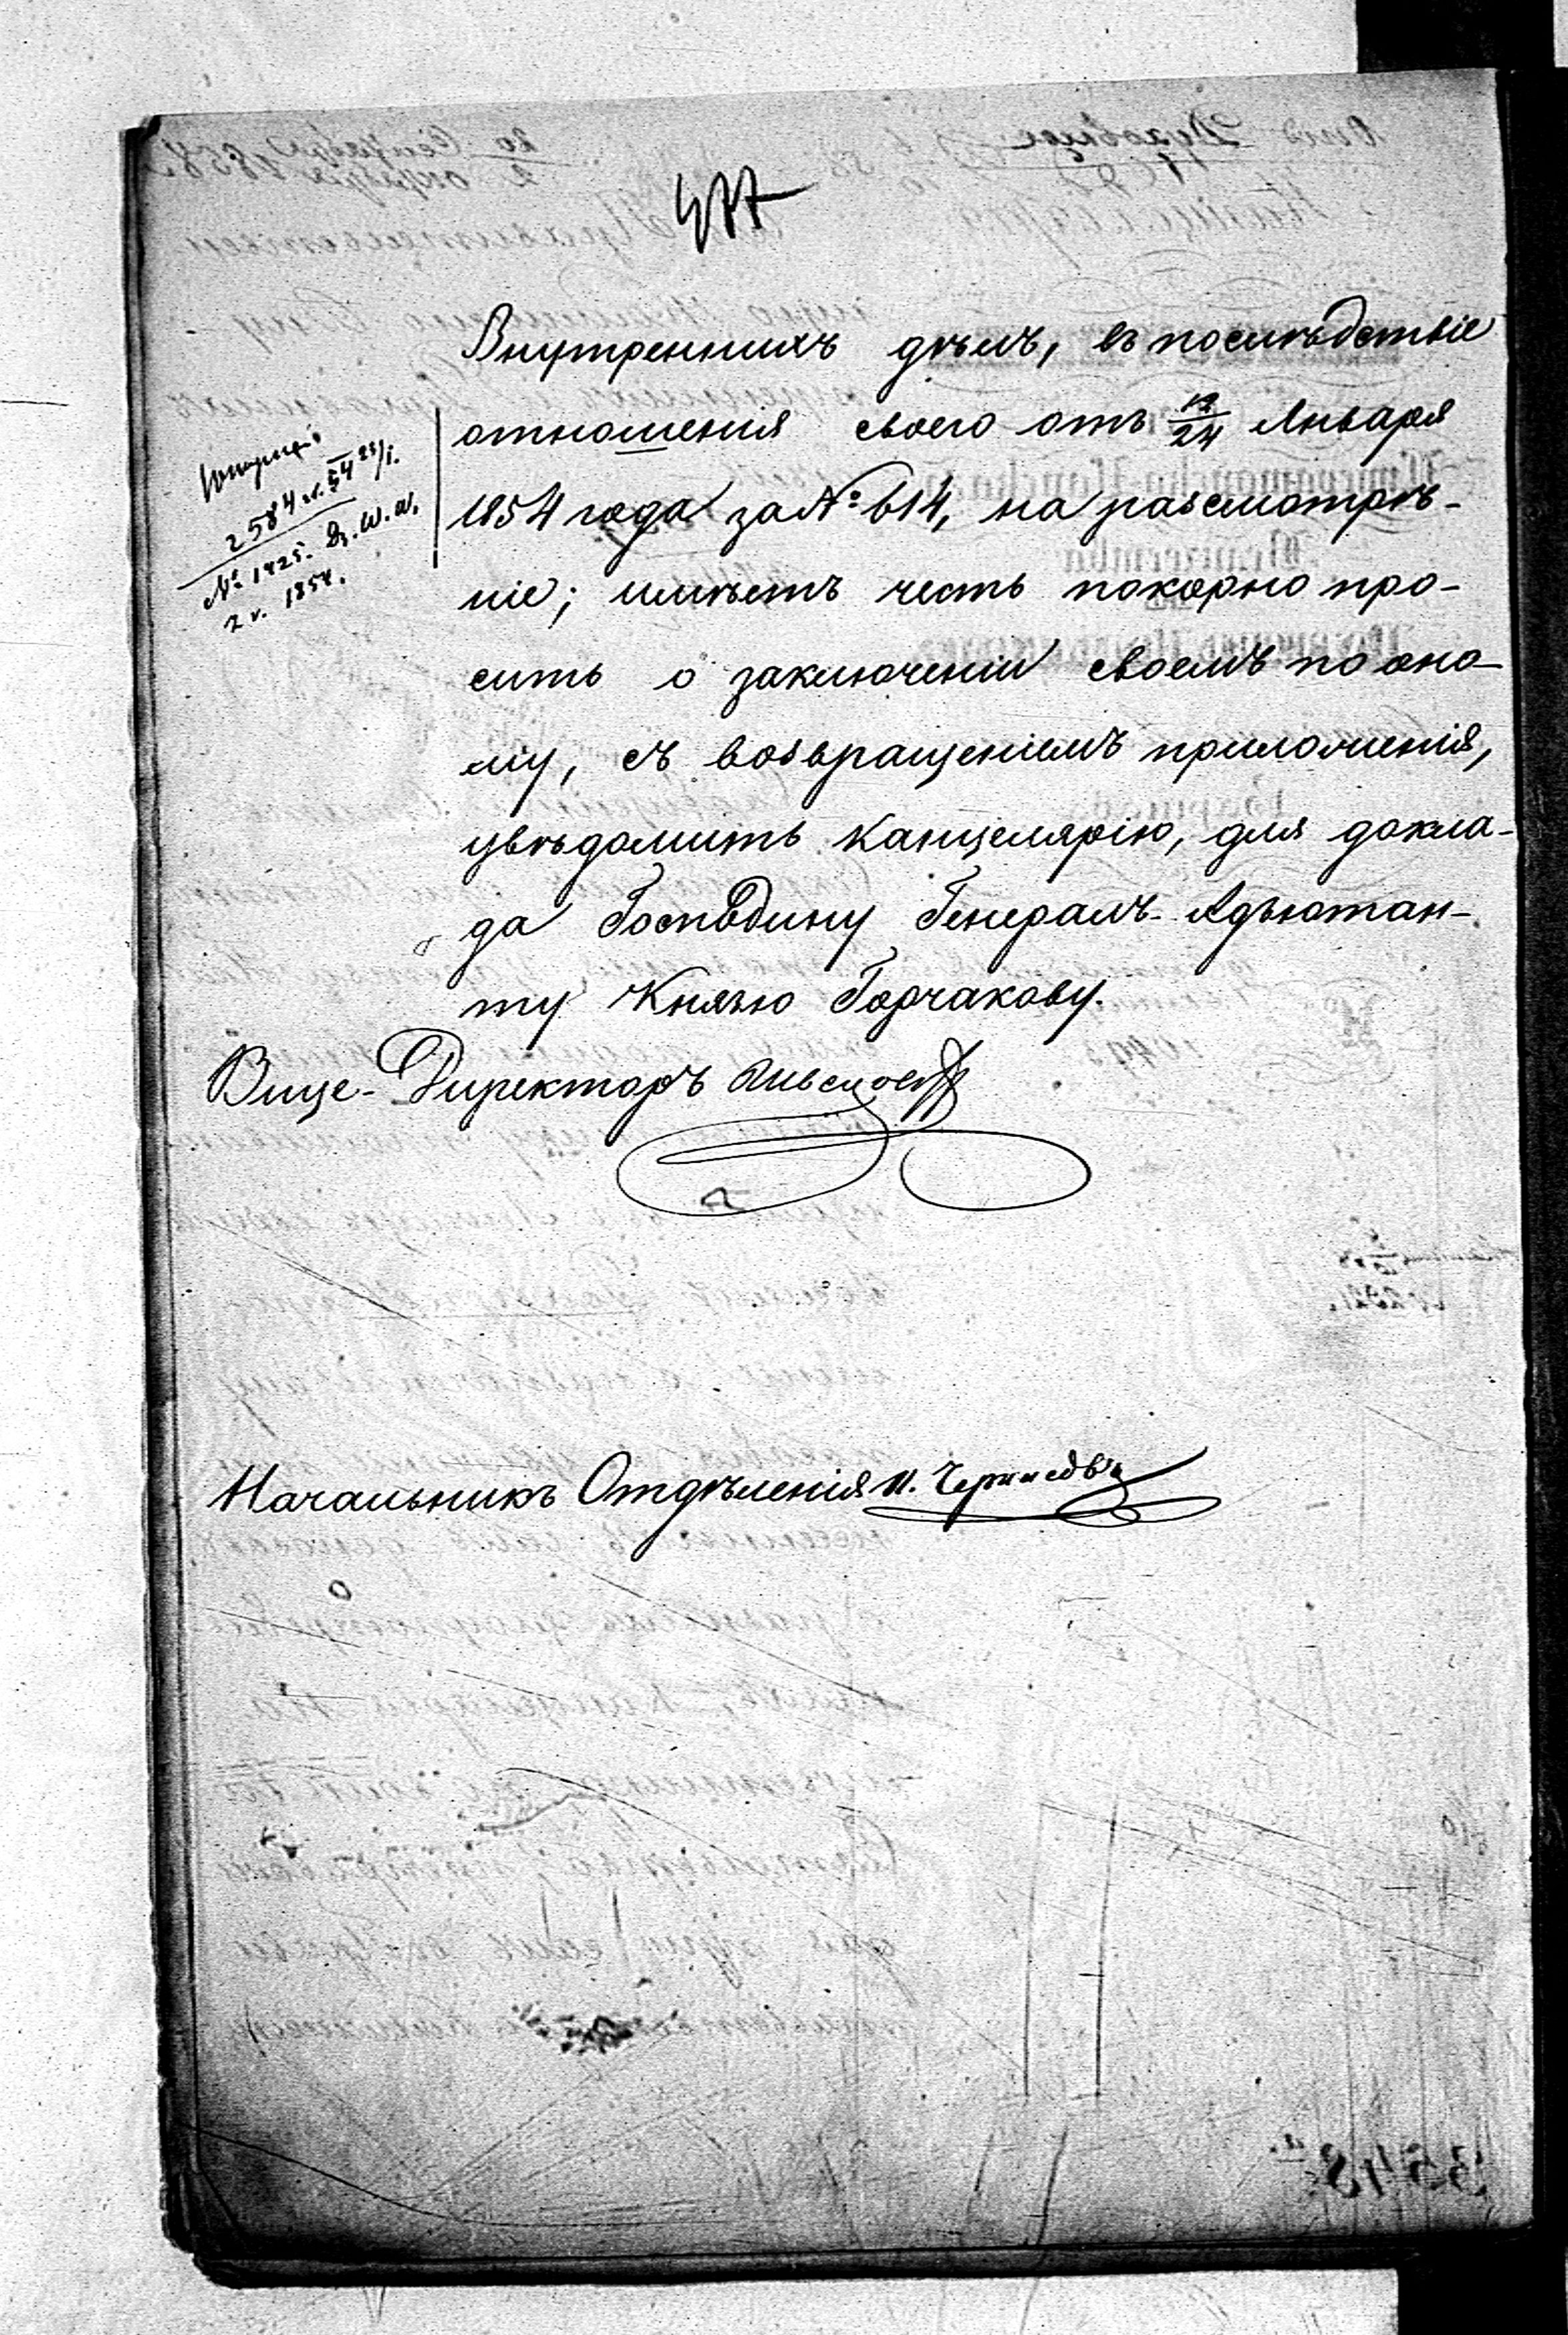 477
Внутреннихъ дѣлъ, въ послѣдствіе
отношенія своего отъ 12/24 Января
1854 года за № 614, на разсмотрѣ-
ніе; имѣетъ честь покорно про-
сить о заключеніи своемъ по оно-
му, съ возвращеніемъ приложенія,
увѣдомить Канцелярію, для докла-
да Господину Генералъ-Адъютан-
ту Князю Горчакову.
2584 54 23/1.
№ 1425. Dz. W. A.
2 r. 1854.
Вице-Директоръ
Начальникъ Отдѣленія И.